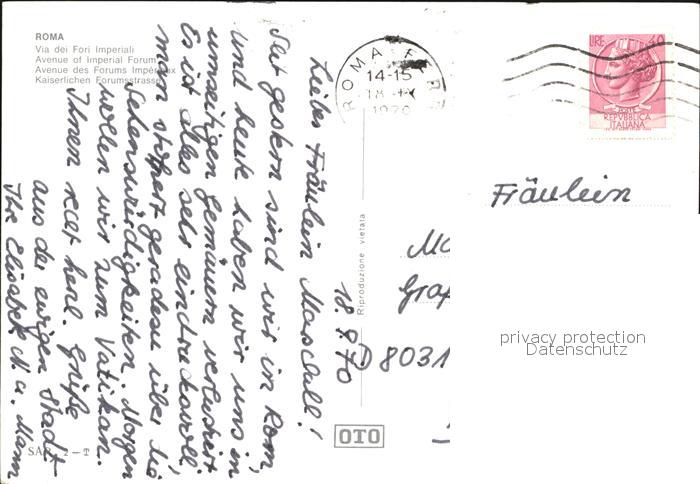 ROMA
Via dei Fori Imperiali
Avenue of Imperial Forum
Avenue des Forums Impériaux
Kaiserlichen Forumsstrasse
18.9.70
Liebes Fräulein Maschall!
Seit gestern sind wir in Rom,
und heute haben wir uns in
umseitigen Gemäuern verlustiert
Es ist alles sehr eindrucksvoll,
man stolpert geradezu über die
Sehenswürdigkeiten. Morgen
wollen wir zum Vatikan.
Ihnen recht herzl. Grüße
aus der ewigen Stadt
Ihr Elisabeth N. u. Mann
ROMA FER
14-15
18 IX
1970
LIRE 40
POSTE
REPVBBLICA
ITALIANA
Fräulein
Ma
Graf
D 8031
Riproduzione vietata
privacy protection
Datenschutz
OTO
SA 2 - T